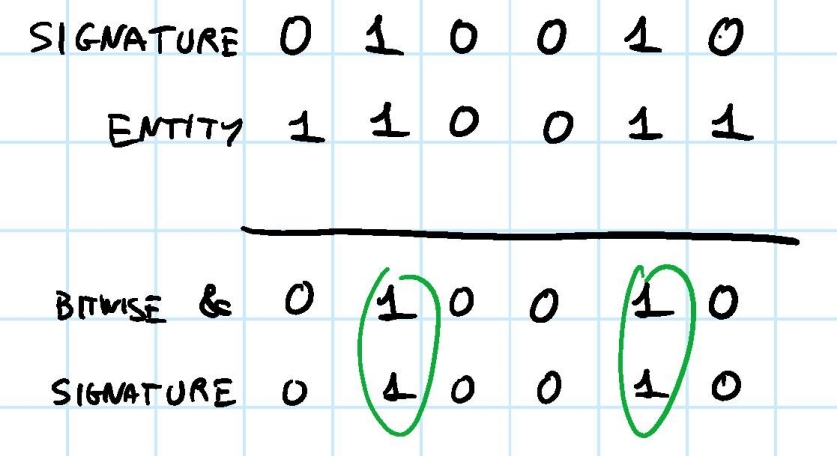 SIGNATURE 0 1 0 0 1 0
ENTITY 1 1 0 0 1 1
BITWISE & 0 1 0 0 1 0
SIGNATURE 0 1 0 0 1 0